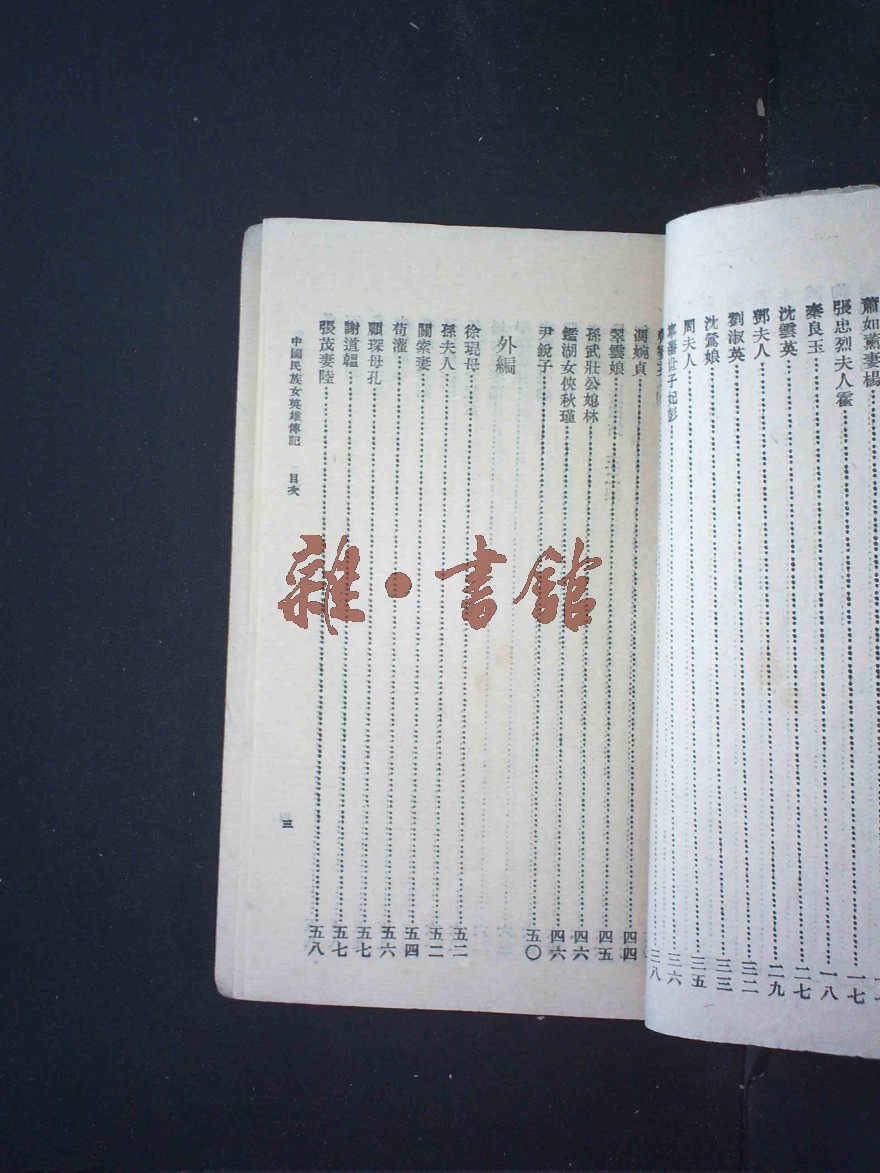 蕭如薰妻楊……一七
張忠烈夫人霍……一八
秦良玉……二七
沈雲英……二九
鄧夫人……三二
劉淑英……三三
沈鸞娘……三五
周夫人……三六
藩世子妃彭……三八
馮婉貞……四四
翠雲娘……四五
孫武壯公媳林……四六
鑑湖女俠秋瑾……四六
尹銳子……五〇
外編
徐琨母……五二
孫夫人……五二
關索妻……五四
荀灌……五六
顧琛母孔……五七
謝道韞……五七
張茂妻陸……五八
中國民族女英雄傳記 目次
三
雜·書館